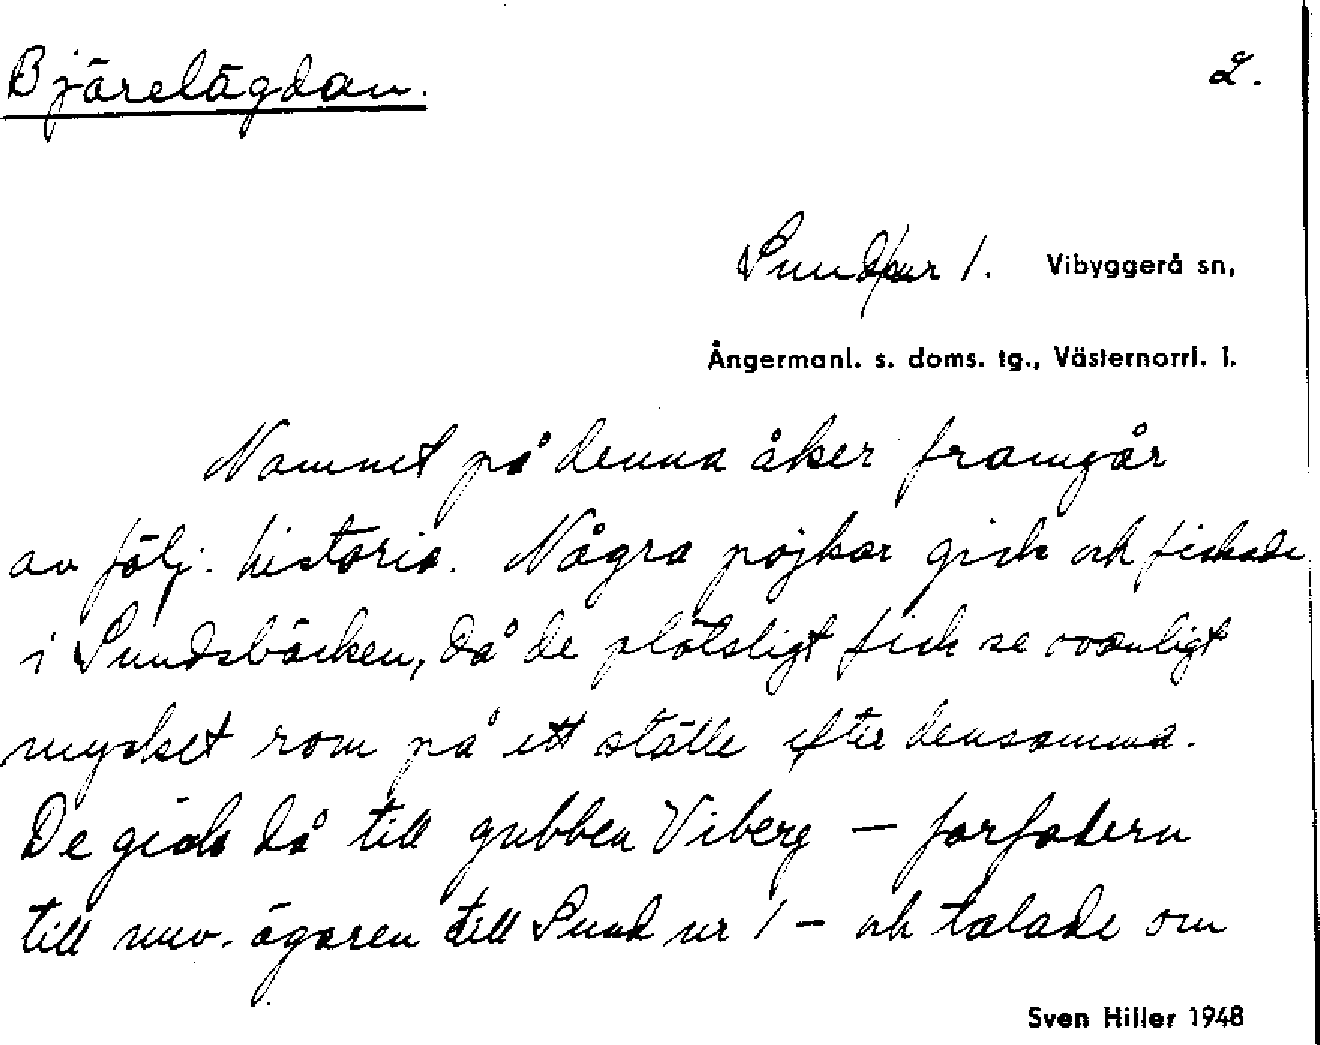 Bjärelägdan.
2.
Sund nr 1. Vibyggerå sn,
Ångermanl. s. doms. tg., Västernorrl. l.
Namnet på denna åker framgår
av följ. historia. Några pojkar gick och fiskade
i Sundsbäcken, då de plötsligt fick se ovanligt
mycket rom på ett ställe efter densamma.
De gick då till gubben Viberg – farfadern
till nuv. ägaren till Sund nr 1 – och talade om
Sven Hiller 1948